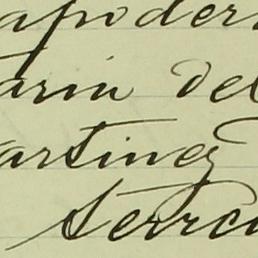 apoder
arin del
artinez
Serra